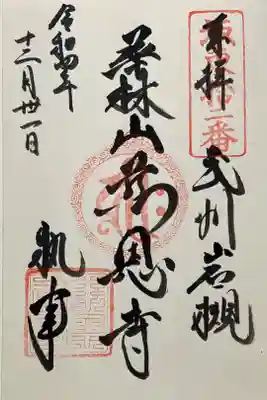 奉拝
武州岩槻
華林山慈恩寺
執事
令和四年
十二月卅一日